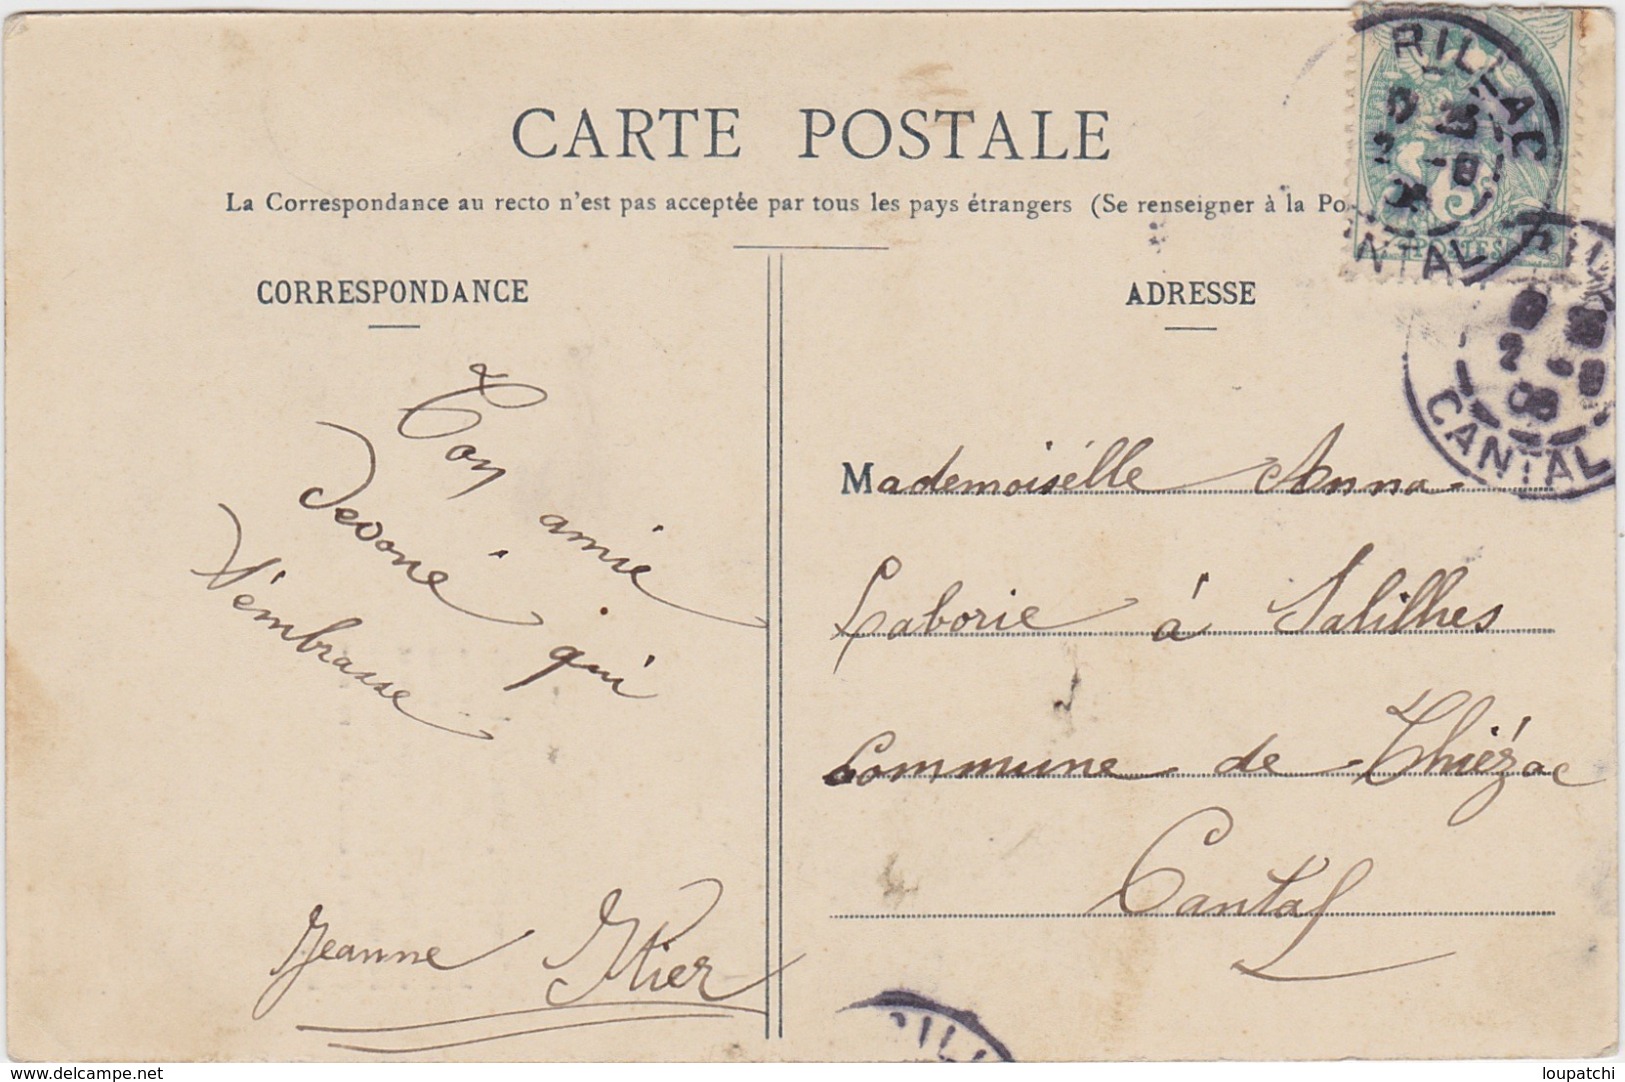 CARTE POSTALE
La Correspondance au recto n'est pas acceptée par tous les pays étrangers (Se renseigner à la Po
CORRESPONDANCE
Ton amie
devoué qui
t'émbrasse
Jeanne
ADRESSE
Mademoisélle Anna
Laborie à Salilhes
Commune de Thiézac
Cantal
RILLAC
NTAL
5
POSTES
2
08
CANTAL
RIL
www.delcampe.net
loupatchi